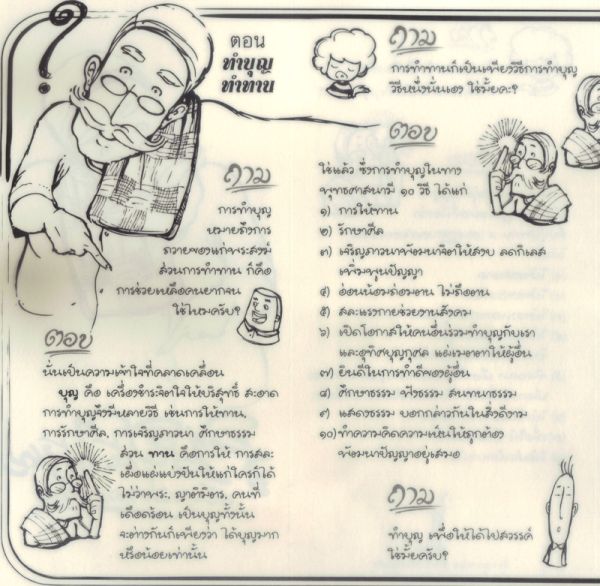 ตอน
ทำบุญ
ทำทาน
ถาม
การทำบุญ
หมายถึงการ
ถวายของแก่พระสงฆ์
ส่วนการทำทาน ก็คือ
การช่วยเหลือคนยากจน
ใช่ไหมครับ?
ตอบ
นั่นเป็นความเข้าใจที่คลาดเคลื่อน
บุญ คือ เครื่องชำระจิตใจให้บริสุทธิ์ สะอาด
การทำบุญจึงมีหลายวิธี เช่นการให้ทาน,
การรักษาศีล, การเจริญภาวนา ศึกษาธรรม
ส่วน ทาน คือการให้ การสละ
เผื่อแผ่แบ่งปันให้แก่ใครก็ได้
ไม่ว่าพระ, ญาติมิตร, คนที่
เดือดร้อน เป็นบุญทั้งนั้น
จะต่างกันก็เพียงว่า ได้บุญมาก
หรือน้อยเท่านั้น
ถาม
การทำทานก็เป็นเพียงวิธีการทำบุญ
วิธีหนึ่งนั่นเอง ใช่มั้ยคะ?
ตอบ
ใช่แล้ว ซึ่งการทำบุญในทาง
พุทธศาสนามี ๑๐ วิธี ได้แก่
๑) การให้ทาน
๒) รักษาศีล
๓) เจริญภาวนาพัฒนาจิตให้สงบ ลดกิเลส
เพิ่มพูนปัญญา
๔) อ่อนน้อมถ่อมตน ไม่ถือตน
๕) สละแรงกายช่วยงานสังคม
๖) เปิดโอกาสให้คนอื่นร่วมทำบุญกับเรา
และอุทิศบุญกุศล แผ่เมตตาให้ผู้อื่น
๗) ยินดีในการทำดีของผู้อื่น
๘) ศึกษาธรรม ฟังธรรม สนทนาธรรม
๙) แสดงธรรม บอกกล่าวกันในสิ่งดีงาม
๑๐) ทำความคิดความเห็นให้ถูกต้อง
พัฒนาปัญญาอยู่เสมอ
ถาม
ทำบุญ เพื่อให้ได้ไปสวรรค์
ใช่มั้ยครับ?